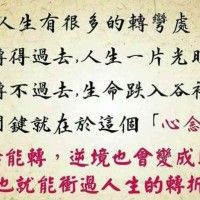 人生有很多的轉彎處
轉得過去,人生一片光
轉不過去,生命跌入谷
關鍵就在於這個「心念
念能轉，逆境也會變成
也就能衝過人生的轉折